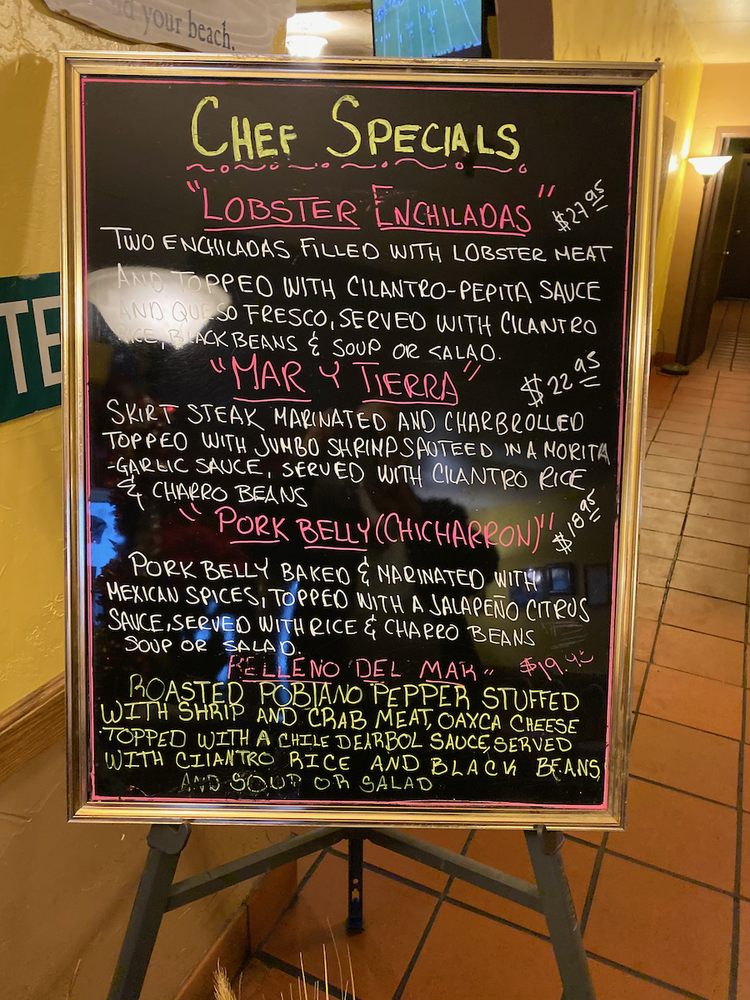 find your beach.
TE
CHEF SPECIALS
"LOBSTER ENCHILADAS" $27.95
TWO ENCHILADAS FILLED WITH LOBSTER MEAT
AND TOPPED WITH CILANTRO-PEPITA SAUCE
AND QUESO FRESCO, SERVED WITH CILANTRO
RICE, BLACK BEANS & SOUP OR SALAD.
"MAR Y TIERRA" $22.95
SKIRT STEAK MARINATED AND CHARBROLLED
TOPPED WITH JUMBO SHRIMP SAUTEED IN A MORITA
-GARLIC SAUCE, SERVED WITH CILANTRO RICE
& CHARRO BEANS
"PORK BELLY (CHICHARRON)" $18.95
PORK BELLY BAKED & MARINATED WITH
MEXICAN SPICES, TOPPED WITH A JALAPEÑO CITRUS
SAUCE, SERVED WITH RICE & CHARRO BEANS
SOUP OR SALAD.
RELLENO DEL MAR" $19.95
ROASTED POBLANO PEPPER STUFFED
WITH SHRIP AND CRAB MEAT, OAXCA CHEESE
TOPPED WITH A CHILE DEARBOL SAUCE, SERVED
WITH CILANTRO RICE AND BLACK BEANS,
AND SOUP OR SALAD